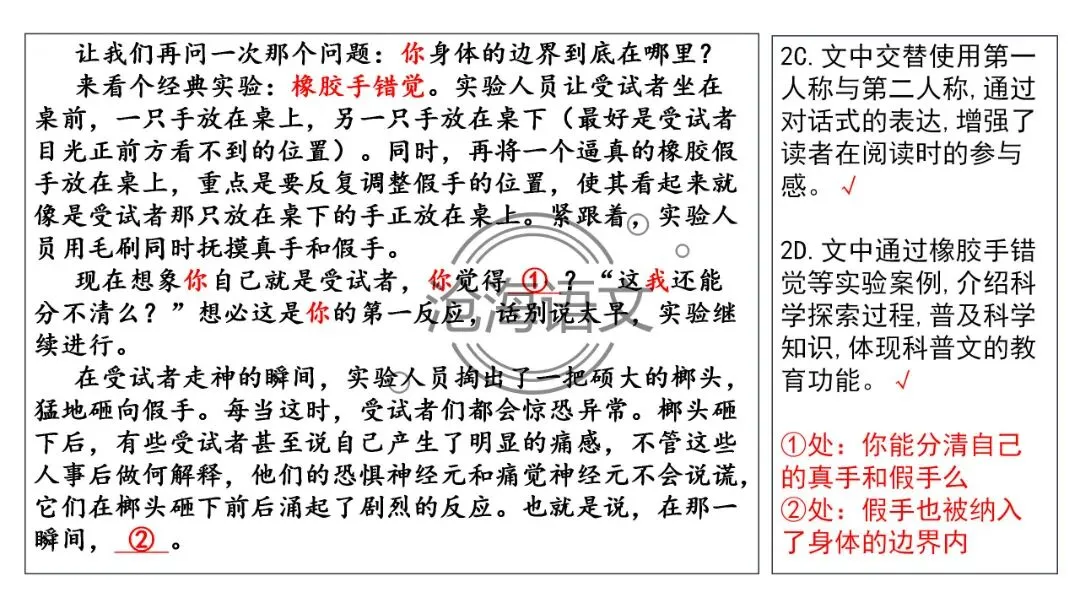 让我们再问一次那个问题：你身体的边界到底在哪里？
来看个经典实验：橡胶手错觉。实验人员让受试者坐在
桌前，一只手放在桌上，另一只手放在桌下（最好是受试者
目光正前方看不到的位置）。同时，再将一个逼真的橡胶假
手放在桌上，重点是要反复调整假手的位置，使其看起来就
像是受试者那只放在桌下的手正放在桌上。紧跟着，实验人
员用毛刷同时抚摸真手和假手。
现在想象你自己就是受试者，你觉得 ① ？“这我还能
分不清么？”想必这是你的第一反应，话别说太早，实验继
续进行。
在受试者走神的瞬间，实验人员掏出了一把硕大的榔头，
猛地砸向假手。每当这时，受试者们都会惊恐异常。榔头砸
下后，有些受试者甚至说自己产生了明显的痛感，不管这些
人事后做何解释，他们的恐惧神经元和痛觉神经元不会说谎，
它们在榔头砸下前后涌起了剧烈的反应。也就是说，在那一
瞬间， ② 。
沧海语文
2C.文中交替使用第一
人称与第二人称,通过
对话式的表达,增强了
读者在阅读时的参与
感。√
2D.文中通过橡胶手错
觉等实验案例,介绍科
学探索过程,普及科学
知识,体现科普文的教
育功能。√
①处：你能分清自己
的真手和假手么
②处：假手也被纳入
了身体的边界内